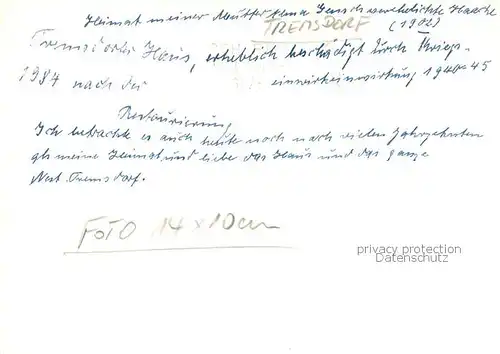 Heimat meiner Mutter verehelichte Haacke
TREMSDORF (1902)
Tremsdorfer Haus, erheblich beschädigt durch Kriegs-
1987 nach der einwirkeinwirkung 1940-45
Restaurierung
Ich betrachte es auch heute noch nach vielen Jahrzehnten
als meine Heimat und liebe das Haus und das ganze
Nest Tremsdorf.
FOTO 14 x 10 cm
privacy protection
Datenschutz